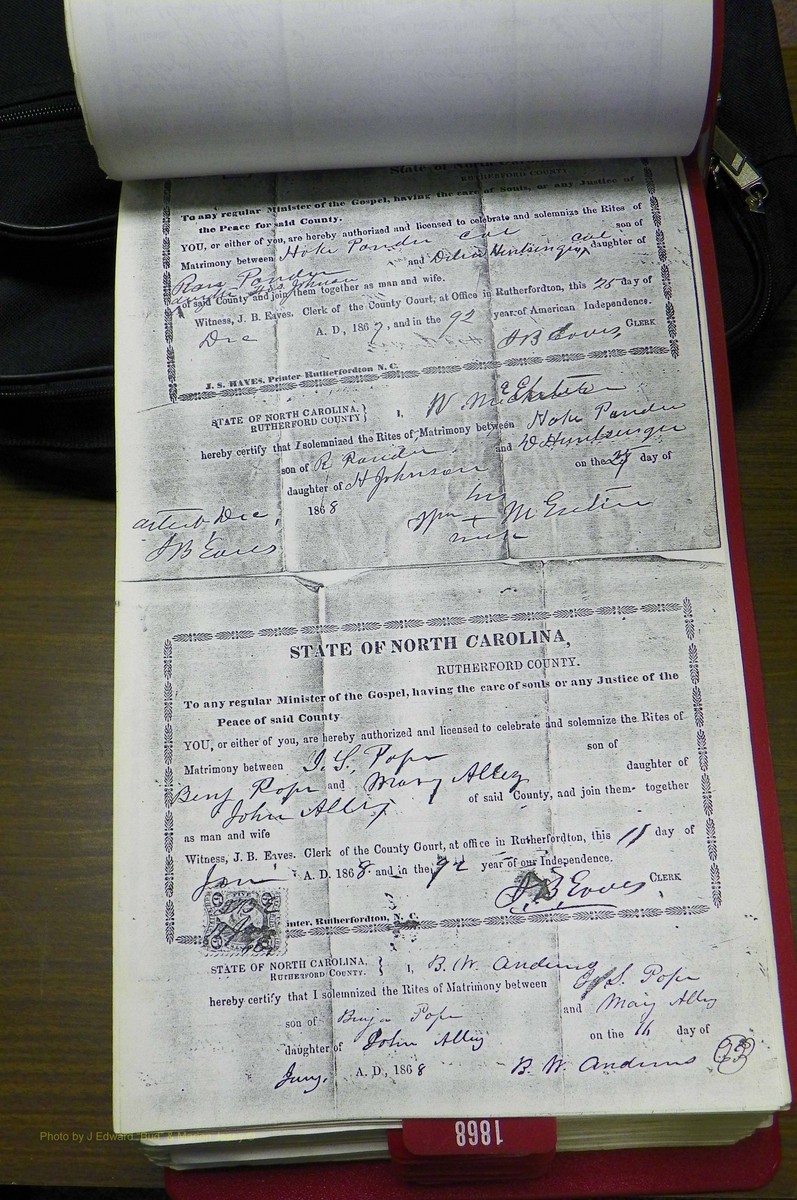 State of North Carolina
RUTHERFORD COUNTY
To any regular Minister of the Gospel, having the care of souls, or any Justice of
the Peace for said County.
YOU, or either of you, are hereby authorized and licensed to celebrate and solemnize the Rites of
Matrimony between Hoke Pander Col son of
and Huntsinger Col daughter of
Johnson
of said County and join them together as man and wife.
Witness, J. B. Eaves. Clerk of the County Court, at Office in Rutherfordton, this 25 day of
Dec A. D., 1867, and in the 92 year of American Independence.
J B Eaves CLERK
J. S. HAYES, Printer Rutherfordton N. C.
STATE OF NORTH CAROLINA, }
RUTHERFORD COUNTY } I, W.
hereby certify that I solemnized the Rites of Matrimony between Hoke Pander
son of R Pander and D Huntsinger
daughter of H Johnson on the day of
1868
his
J B Eaves
STATE OF NORTH CAROLINA,
RUTHERFORD COUNTY.
To any regular Minister of the Gospel, having the care of souls or any Justice of the
Peace of said County
YOU, or either of you, are hereby authorized and licensed to celebrate and solemnize the Rites of
Matrimony between Pope son of
Benj Pope and Mary Alley daughter of
John Alley of said County, and join them together
as man and wife
Witness, J. B. Eaves. Clerk of the County Court, at office in Rutherfordton, this 11 day of
Jan A. D. 1868 and in the 92 year of our Independence.
J. B. Eaves CLERK
inter, Rutherfordton, N. C.
STATE OF NORTH CAROLINA, }
RUTHERFORD COUNTY. } I, B. W. Andrews
hereby certify that I solemnized the Rites of Matrimony between S. Pope
son of Benja Pope and Mary Alley
daughter of John Alley on the 16 day of
Jany. A. D., 1868 B. W. Andrews
33
1868
Photo by J Edward "Bud" &